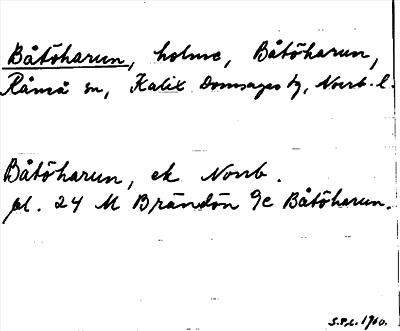 Båtöharun, holme, Båtöharun,
Råneå sn, Kalix Domsagas tg, Norrb. l.
Båtöharun, ek Norrb.
bl. 24 M Brändön 9c Båtöharun.
1960.